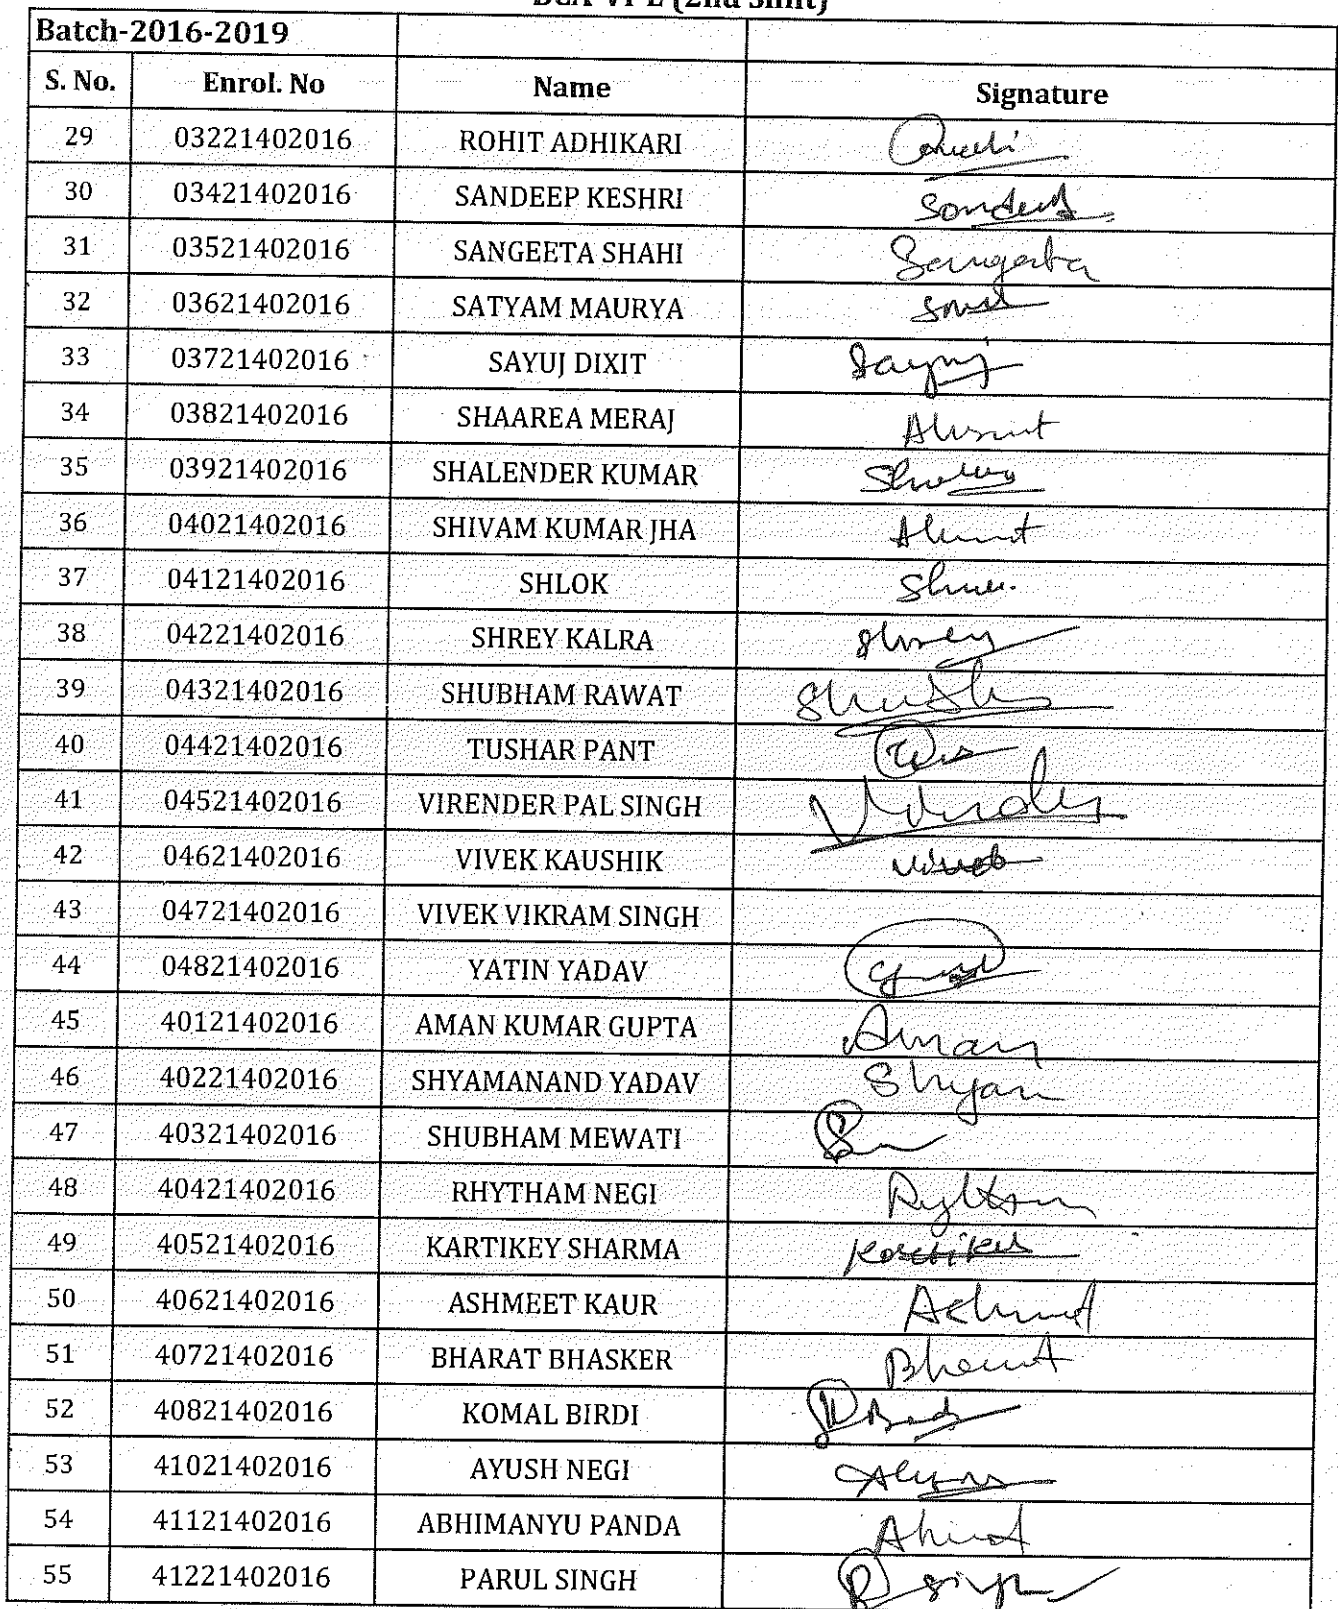 BCA VI E (2nd Shift)
Batch-2016-2019
S. No. Enrol. No Name Signature
29 03221402016 ROHIT ADHIKARI
30 03421402016 SANDEEP KESHRI
31 03521402016 SANGEETA SHAHI Sangeeta
32 03621402016 SATYAM MAURYA
33 03721402016 SAYUJ DIXIT Sayuj
34 03821402016 SHAAREA MERAJ
35 03921402016 SHALENDER KUMAR
36 04021402016 SHIVAM KUMAR JHA
37 04121402016 SHLOK
38 04221402016 SHREY KALRA Shrey
39 04321402016 SHUBHAM RAWAT
40 04421402016 TUSHAR PANT
41 04521402016 VIRENDER PAL SINGH
42 04621402016 VIVEK KAUSHIK
43 04721402016 VIVEK VIKRAM SINGH
44 04821402016 YATIN YADAV
45 40121402016 AMAN KUMAR GUPTA Aman
46 40221402016 SHYAMANAND YADAV Shyam
47 40321402016 SHUBHAM MEWATI
48 40421402016 RHYTHAM NEGI
49 40521402016 KARTIKEY SHARMA
50 40621402016 ASHMEET KAUR
51 40721402016 BHARAT BHASKER Bharat
52 40821402016 KOMAL BIRDI
53 41021402016 AYUSH NEGI
54 41121402016 ABHIMANYU PANDA
55 41221402016 PARUL SINGH